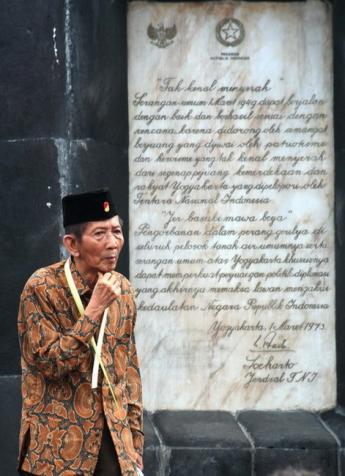 PRESIDEN
REPUBLIK INDONESIA
"Tak kenal menyerah"
Serangan umum 1 Maret 1949 dapat berjalan
dengan baik dan berhasil sesuai dengan
rencana, karena didorong oleh semangat
berjuang yang dijiwai oleh patriotisme
dan heroisme yang tak kenal menyerah
dari segenap pejuang kemerdekaan dan
rakyat Yogyakarta yang dipelopori oleh
Tentara Nasional Indonesia
"Jer basuki mawa beya"
Pengorbanan dalam perang grilya di
seluruh pelosok tanah air umumnya serta
serangan umum atas Yogyakarta khususnya
dapat memperkuat perjuangan politik diplomasi
yang akhirnya memaksa lawan mengakui
kedaulatan Negara Republik Indonesia
Yogyakarta, 1 Maret 1973.
Soeharto
Jendral TNI